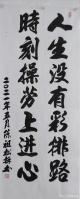 人生没有彩排路
时刻操劳上进心
二〇二一年五月陈祖松书